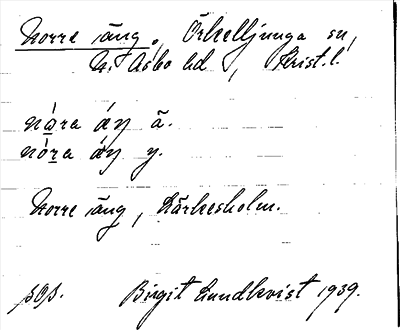 Norre äng, Örkelljunga sn,
N. Åsbo hd, Krist. l.
nåra áŋ ä.
nóra áŋ y.
Norre äng, Lärkesholm.
sos.
Birgit Lundkvist 1939.